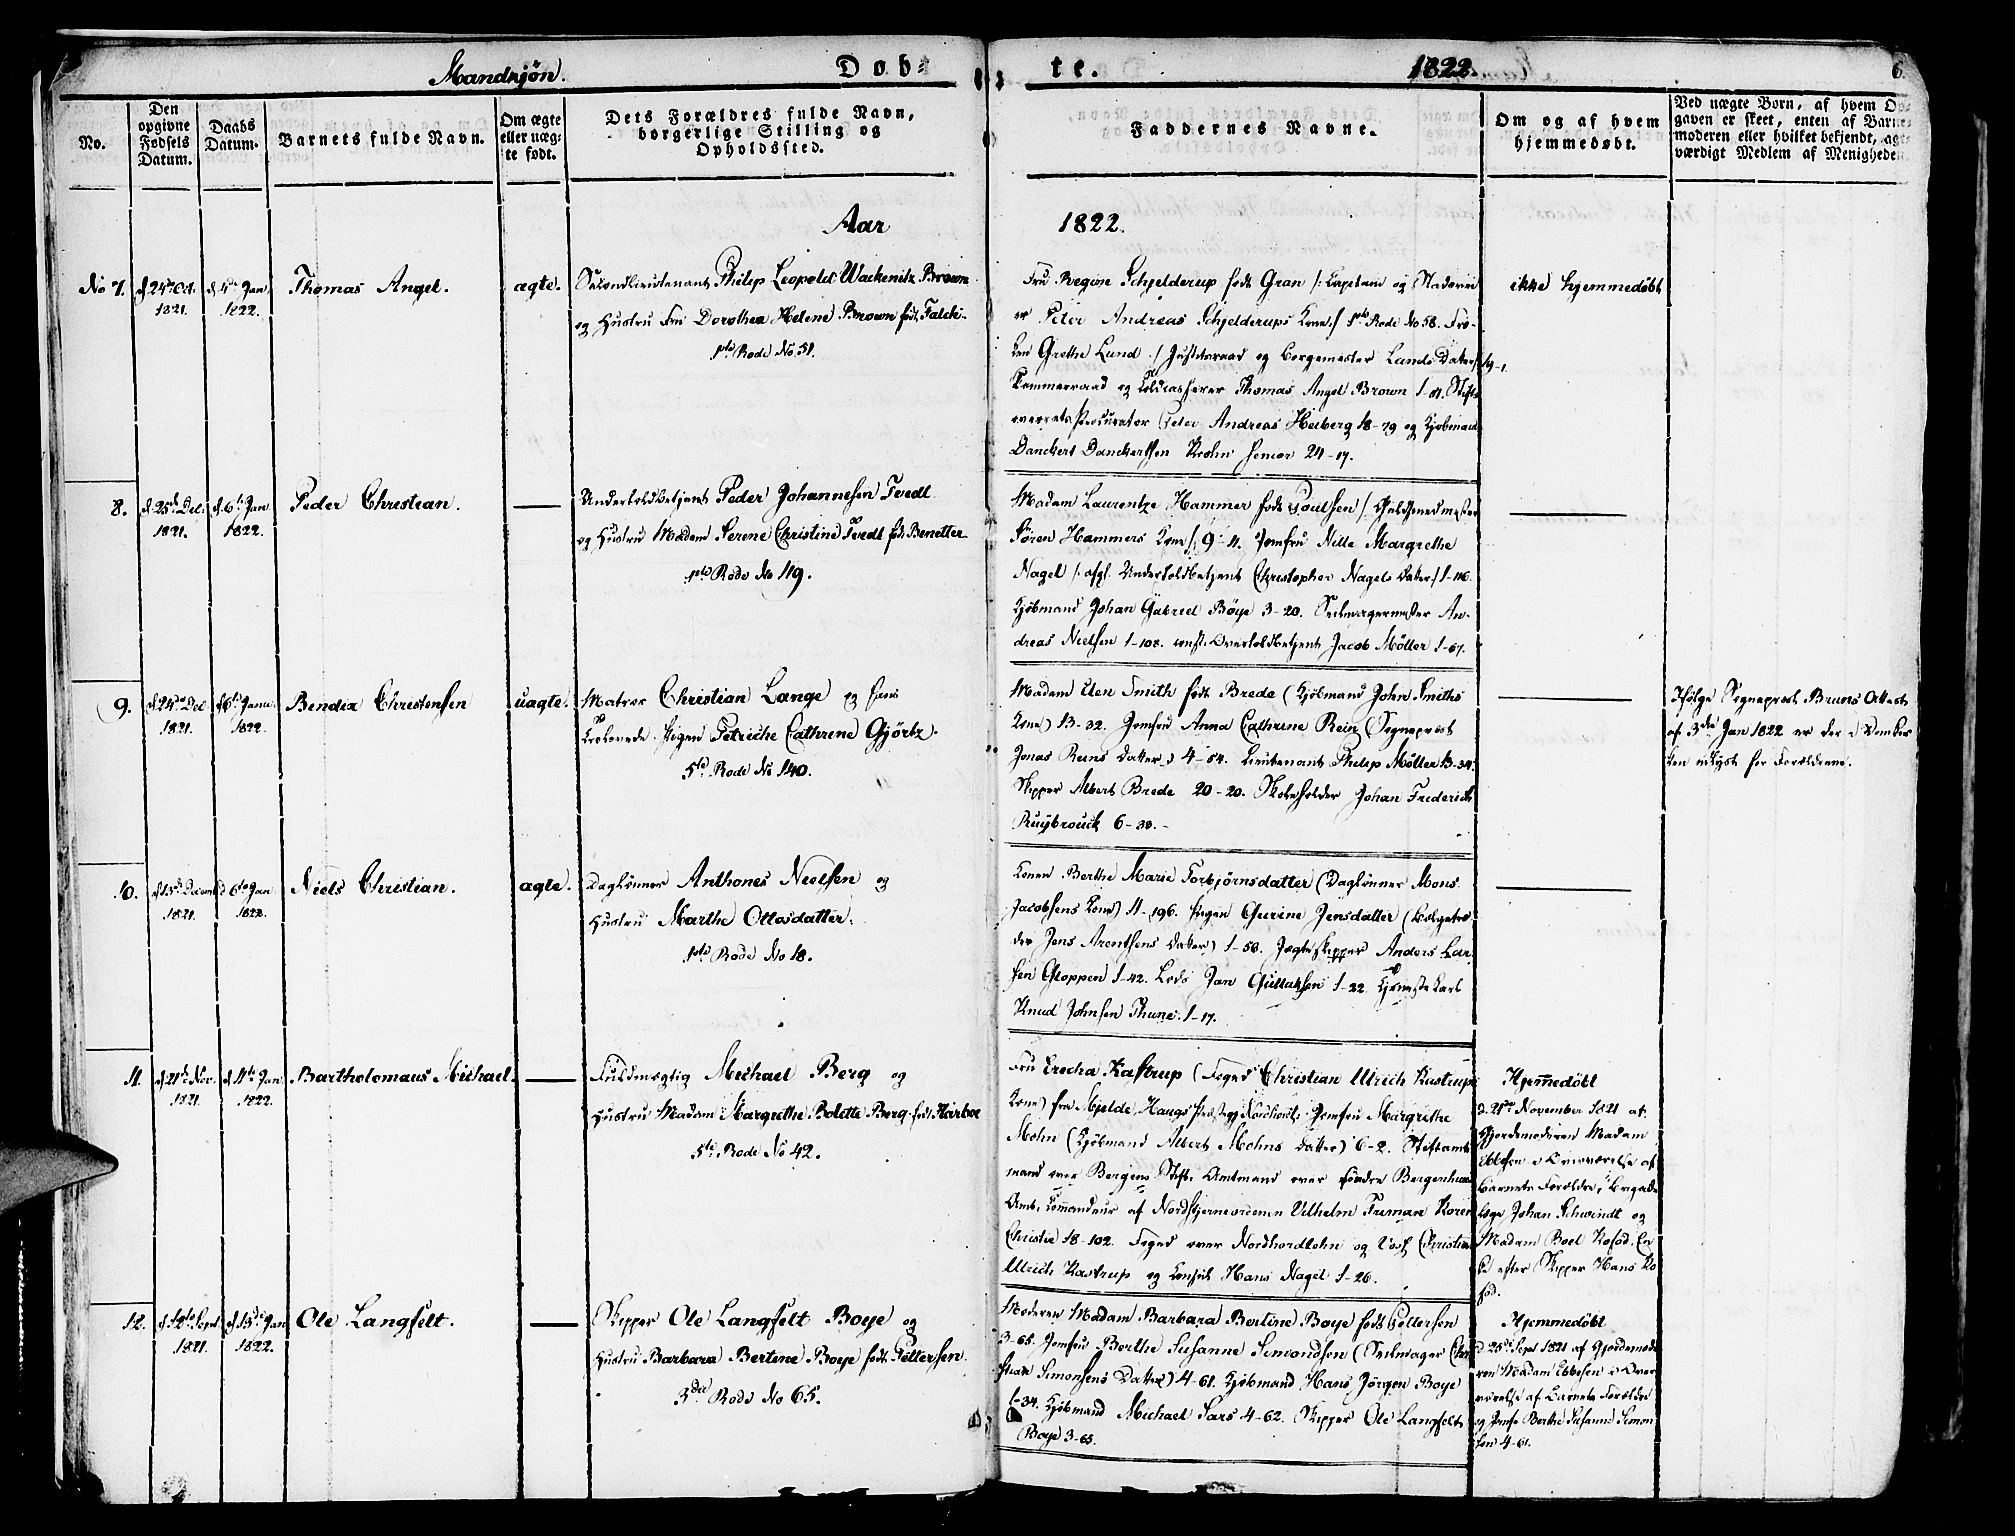 Mandkjøn.
Døbte.
1822.
6
No.
Den opgivne Fødsels Datum.
Daabs Datum.
Barnets fulde Navn.
Om ægte eller uægte født.
Dets Forældres fulde Navn, borgerlige Stilling og Opholdssted.
Faddernes Navne.
Om og af hvem hjemmedøbt.
Ved uægte Børn, af hvem Op-
gaven er skeet, enten af Barne-
moderen eller hvilket bekjendt, agt-
værdigt Medlem af Menigheden.
Aar 1822.
No 7.
d. 24de Oct. 1821.
d. 4de Jan. 1822.
Thomas Angel.
ægte.
Secondlieutenant Philip Leopold Wackenitz Brown
og Hustru Fru Dorothea Helene Brown født Falck.
1ste Rode No. 51.
Fru Regine Schjelderup født Gran /: Capitain og
Peter Andreas Schjelderups Kone :/ 1ste Rode No 58. Frø-
ken Grethe Lund /: Justitsraad og Borgemester Lunds Datter :/ 19-1.
Kammerraad og Toldkasserer Thomas Angel Brown 1-51. Stifts
overrets Procurator Peter Andreas Heiberg 18-79 og Kjøbmand
Danckert Danckertsen Krohn Senior 24-17.
ikke hjemmedøbt
8.
d. 25de Dec. 1821.
d. 6te Jan 1822.
Peder Christian.
Undertoldbetjent Peder Johannesen Tvedt
og Hustru Madam Serene Christine Tvedt født Benetter.
1ste Rode No 119.
Madam Laurentze Hammer født Poulsen /: Guldsmedmester
Søren Hammers Kone :/ 9-11. Jomfru Nille Margrethe
Nagel /: afgl. Undertoldbetjent Christopher Nagels Datter :/ 1-116.
Kjøbmand Johan Gabriel Böye 3-20. Seilmagermester An-
dreas Nielsen 1-108. const. Overtoldbetjent Jacob Møller 1-67.
9.
d. 24de Dec 1821.
d. 6te Janu. 1822.
Bendix Christensen
uægte.
Matros Christian Lange og hans
Trolovede Pigen Petriche Cathrine Gjörtz.
5te Rode No 140.
Madam Elen Smith født Brede (Kjøbmand John Smiths
Kone) 13-32. Jomfru Anna Cathrine Rein (Sogneprest
Jonas Reins Datter) 4-54. Lieutenant Philip Møller 13-34.
Skipper Albert Brede 20-20. Skoleholder Johan Frederich
Ruÿbrouck 6-38.
Ifølge Sogneprest Bruns Attest
af 3die Jan 1822 er der i Domkir-
ken udlyst for Forældrene.
10.
d. 15de Decemb 1821.
d 6te Jan 1822.
Niels Christian.
ægte.
Daglønner Anthones Nielsen og
Hustru Marthe Ottosdatter.
1ste Rode No 18.
Konen Berthe Marie Torbjörnsdatter (Daglønner Mons
Jacobsens Kone) 11-196. Pigen Gurine Jensdatter
Jens Arentsens Datter) 1-50. Jægteskipper Anders Lar-
sen Gloppen 1-42. Lods Jan Gullaksen 1-22.
Knud Johnsen Thune. 1-17.
11.
d. 21de Nov. 1821.
d. 11te Jan. 1822.
Bartholomæus Michael.
Fuldmægtig Michael Berg og
Hustru Madam Margrethe Bolette Berg født Harboe
5te Rode No 42.
Fru Ericha Kastrup (Foged Christian Ulrich Kastrups
Kone) fra Mjelde, Haugs Præstegj. Nordhordl. Jomfru Margrethe
Mohn (Kjøbmand Albert Mohns Datter) 6-2. Stiftamt-
mand over Bergens Stift, Amtmand over söndre Bergenhuus
Amt, Commandeur af Nordstjerneordenen Vilhelm Friman Koren
Christie 18-102. Foged over Nordhordlehn og Voss Christian
Ulrich Kastrup og Consul Hans Nagel 1-26.
Hjemmedöbt
d. 21de November 1821 af
Gjordemoderen Madam
Ebbesen i Overværelse af
Barnets Forældre, Brigade
læge Johan Schwindt og
Madam Boel Kofod. En-
ke efter Skipper Hans Ko-
fod.
12.
d. 12te Sept 1821.
d 13de Jan 1822.
Ole Langfelt.
Skipper Ole Langfelt Boye og
Hustru Barbara Bertine Boye født Pettersen.
3die Rode No 65.
Moderen Madam Barbara Bertine Boye født Pettersen
3-65. Jomfru Berthe Susanne Simondsen (Seilmager Chri-
stian Simonsens Datter) 4-61. Kjøbmand Hans Jörgen Boye
1-34. Kjøbmand Michael Sars 4-62. Skipper Ole Langfelt
Boye 3-65.
Hjemmedöbt
d. 25de Sept 1821 af Gjordemode
ren Madam Ebbesen i Over-
værelse af Barnets Forældre
og Jomfr Berthe Susanne Simon-
sen 4-61.